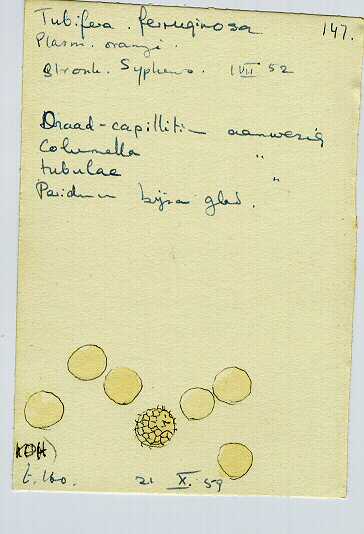 Tubifera. ferruginosa 147.
Plasm. oranje.
Stronk. Sypheno. 1 VII 52
Draad-capillitium aanwezig
Columella "
tubulae "
Peridium bijna glad.
KOH
t. 160. 21 X. 59